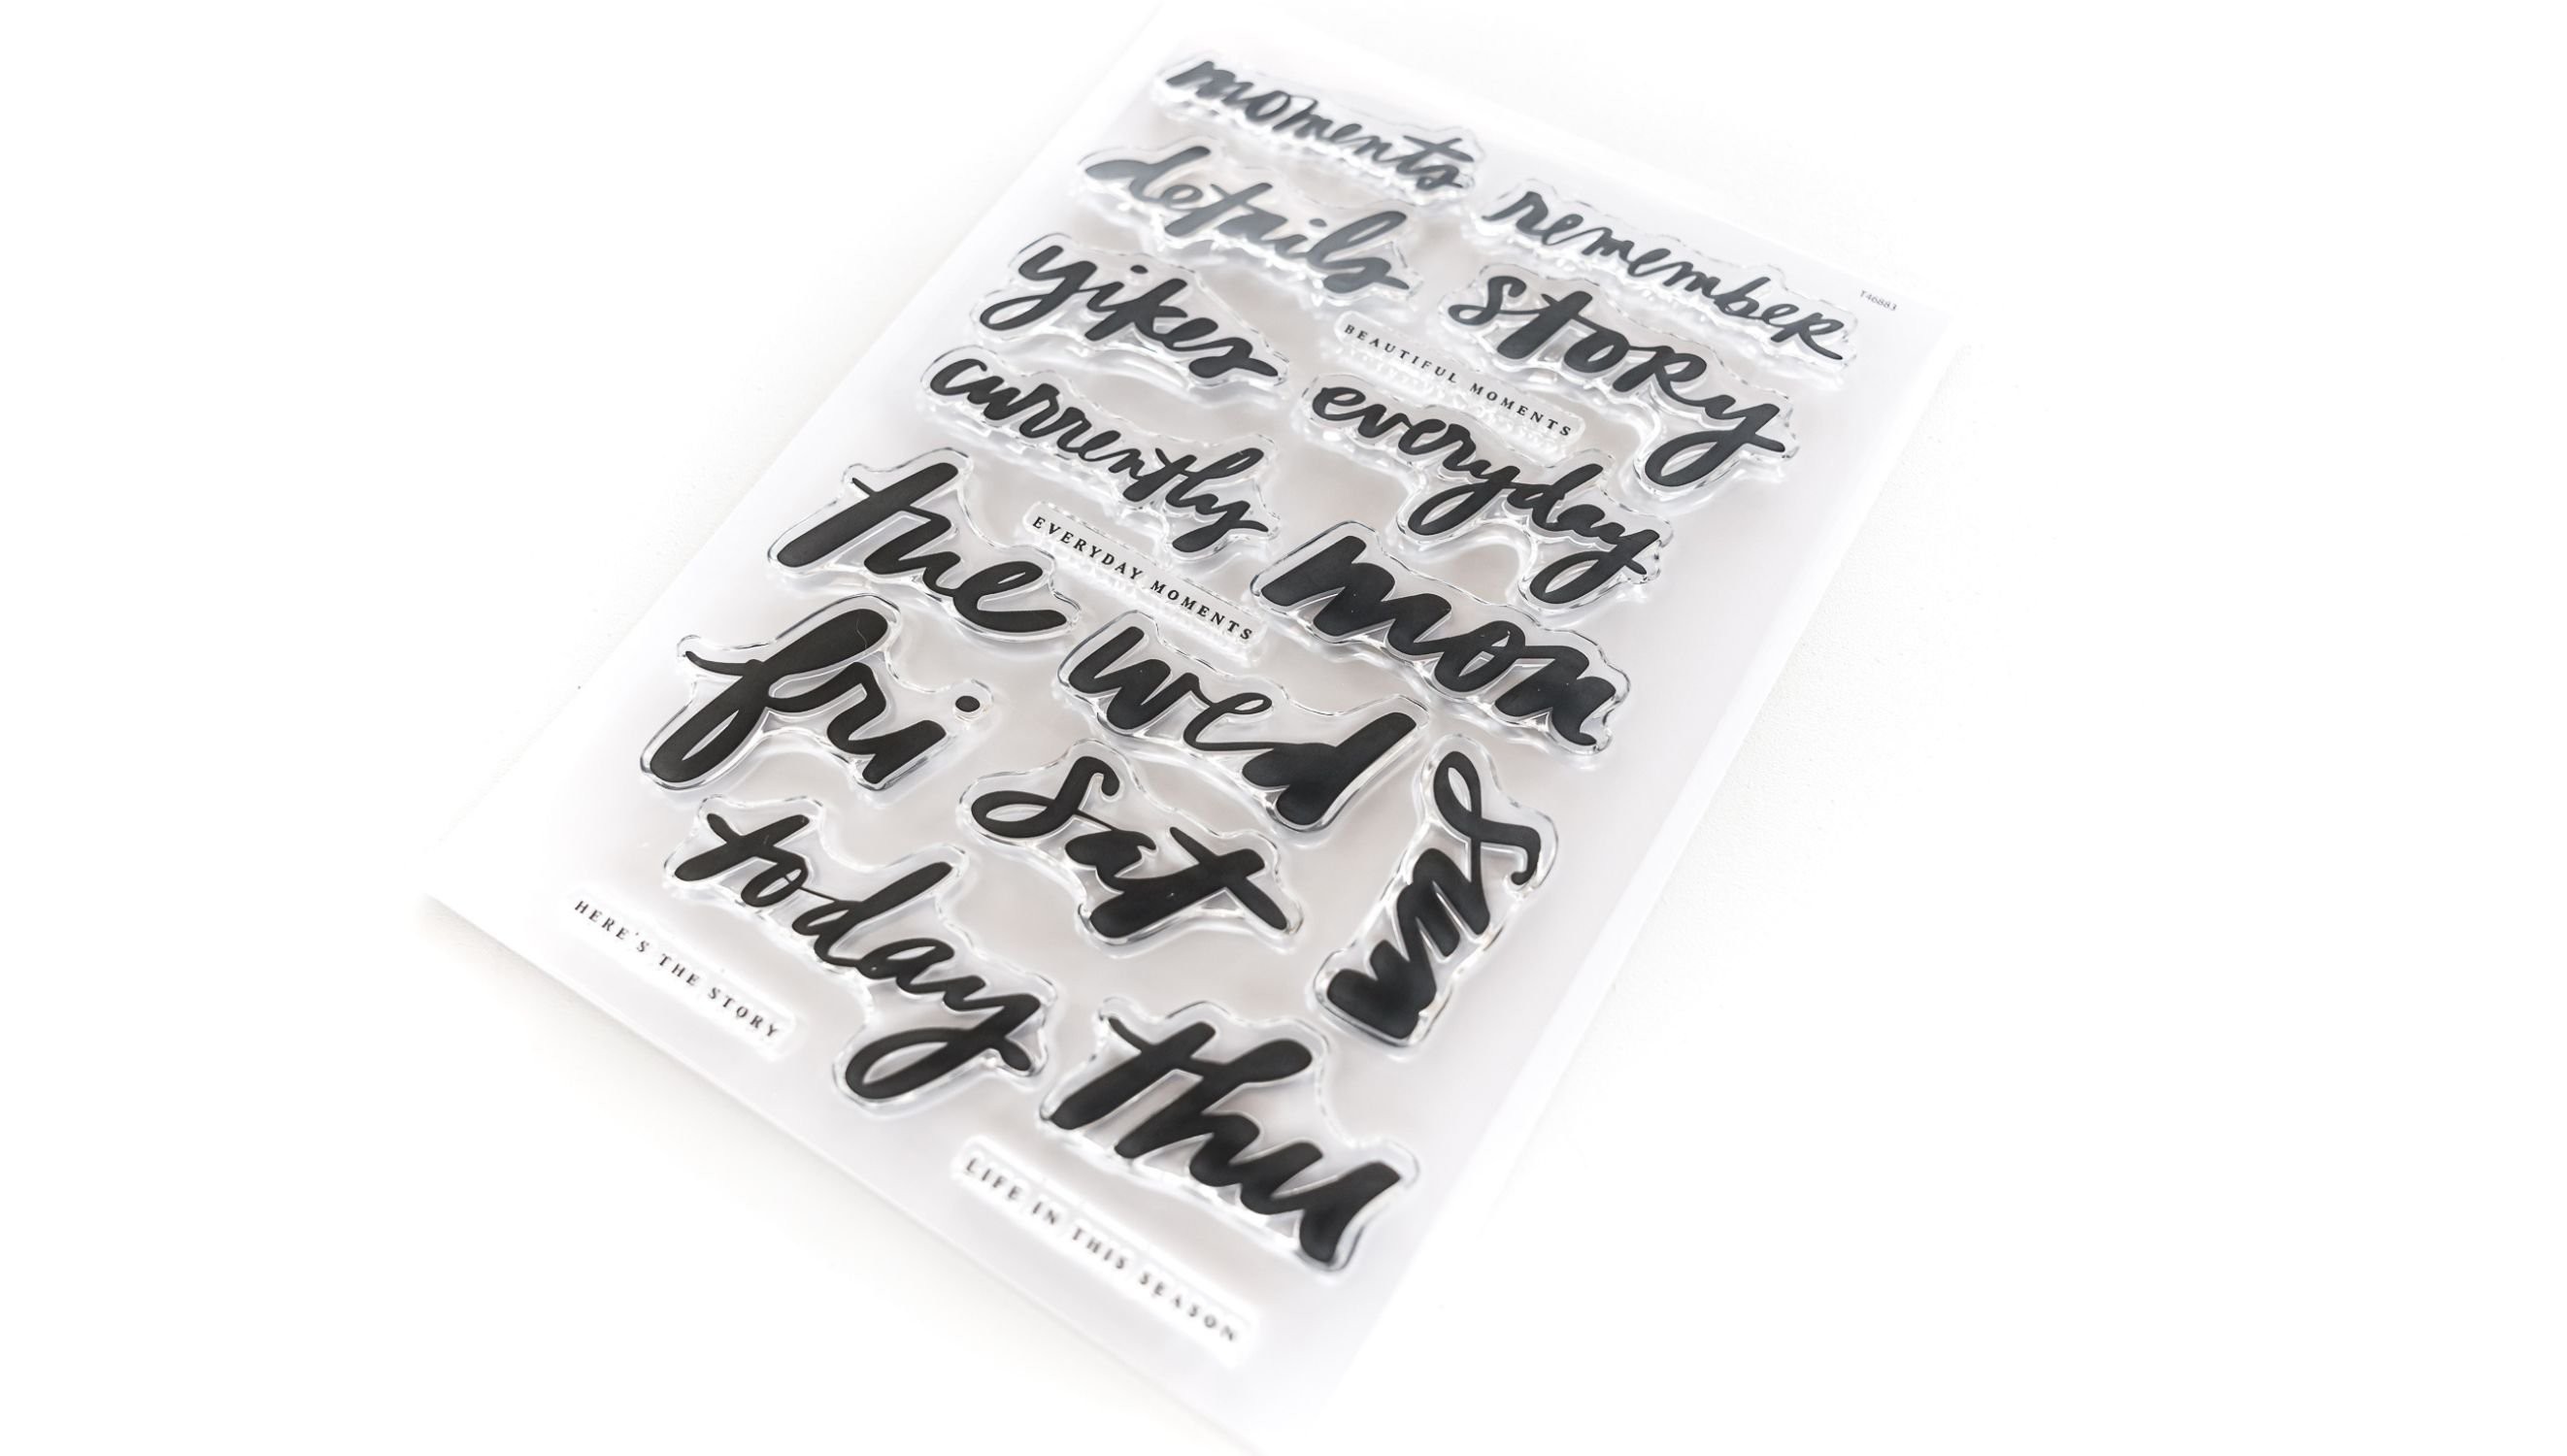 moments
remember
T46883
details
story
yikes
BEAUTIFUL MOMENTS
everyday
currently
EVERYDAY MOMENTS
mon
tue
wed
fri
sat
sun
today
thu
HERE'S THE STORY
LIFE IN THIS SEASON